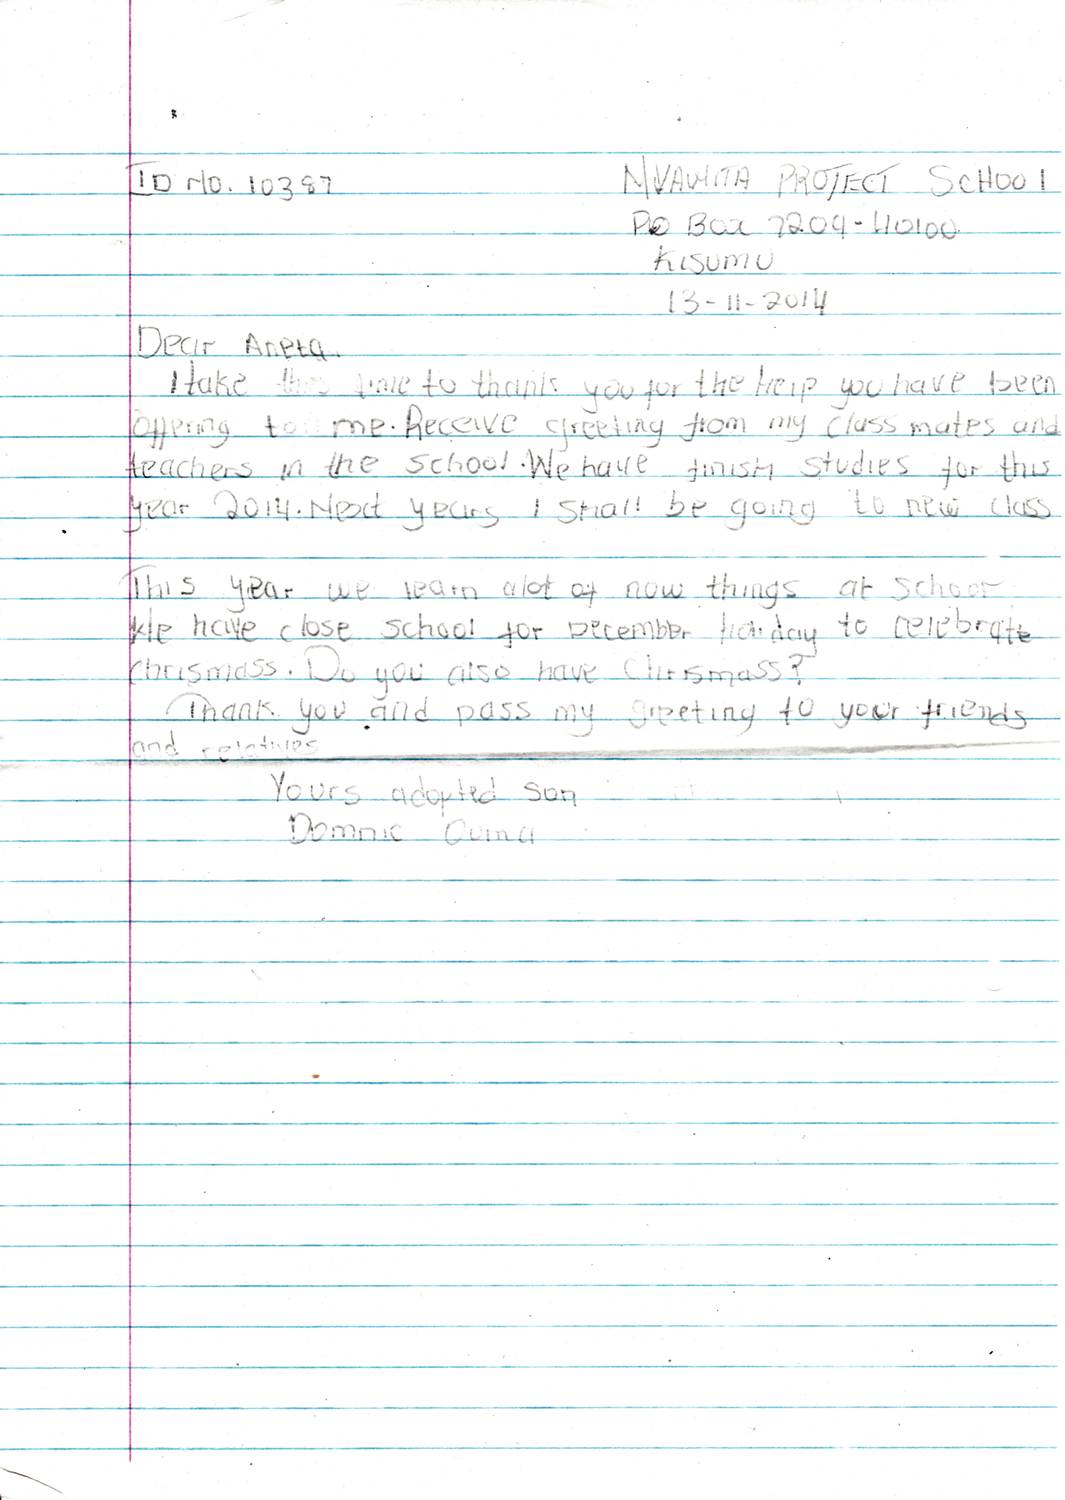 ID No. 10387
MVAWITA PROJECT SCHOOL
PO Box 7209-40100
KISUMU
13-11-2014
Dear Aneta.
I take this time to thank you for the help you have been
offering to me. Receive greeting from my class mates and
teachers in the school. We have finish studies for this
year 2014. Next years I shall be going to new class
This year we learn alot of now things at school
We have close school for December holiday to celebrate
chrismass. Do you also have Chrismass?
Thank you and pass my greeting to your friends
and relatives
Yours adopted son
Domnic Ouma